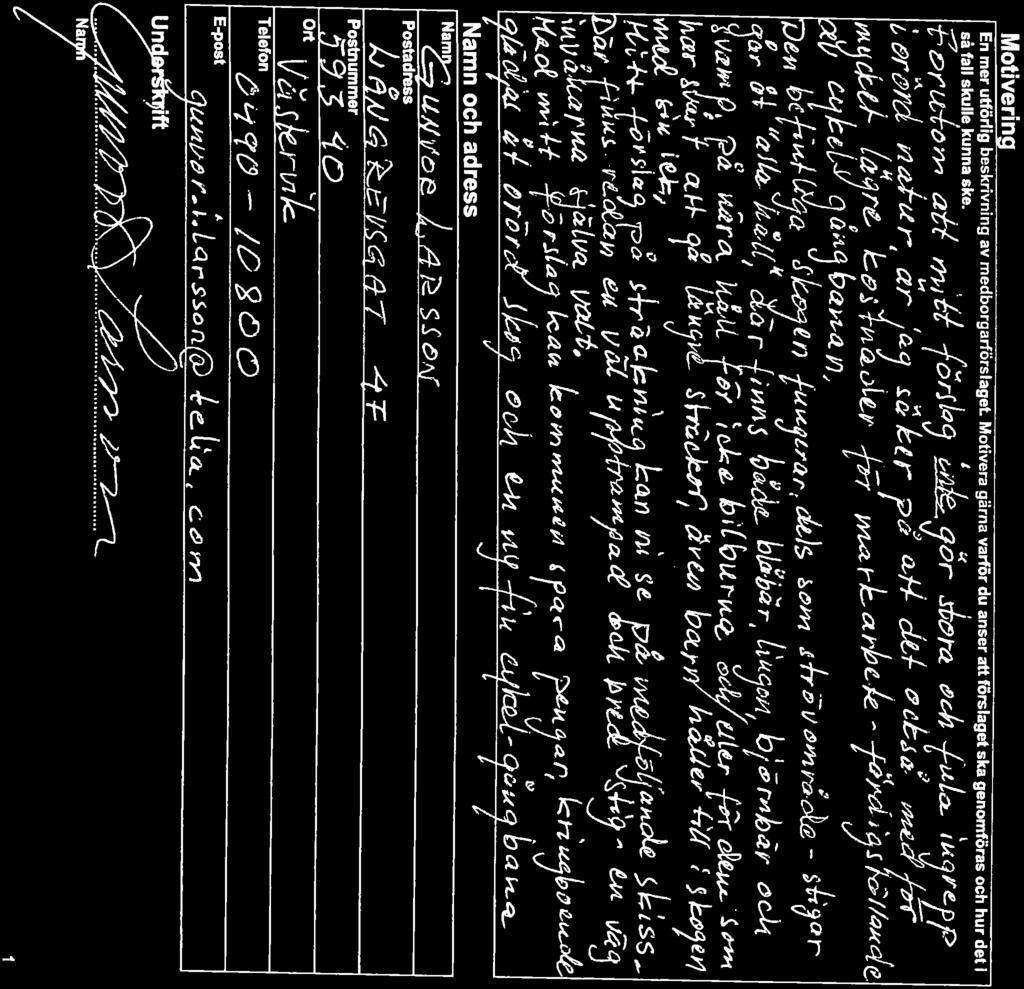 Motivering
En mer utförlig beskrivning av medborgarförslaget. Motivera gärna varför du anser att förslaget ska genomföras och hur det i
så fall skulle kunna ske.
Förutom att mitt förslag inte gör stora och fula ingrepp
i orörd natur, är jag säker på att det också medför
mycket lägre kostnader för markarbete - färdigställande
av cykel/gångbanan.
Den befintliga skogen fungerar, dels som strövområde - stigar
går åt "alla håll", där finns både blåbär, lingon, björnbär och
svamp, på nära håll för icke bilburna och/eller för dem som
har svårt att gå längre sträckor, även barn håller till i skogen
med sin lek.
Mitt förslag på sträckning kan ni se på medföljande skiss.
Där finns redan en väl upptrampad och bred stig - en väg
invånarna själva valt.
Med mitt förslag kan kommunen spara pengar, kringboende
glädjas åt orörd skog och en ny fin cykel-gångbana
Namn och adress
Namn
GUNVOR LARSSON
Postadress
LÅNGREVSGAT 4F
Postnummer
593 40
Ort
Västervik
Telefon
0490-10800
E-post
gunvor.i.larsson@telia.com
Underskrift
Gunvor Larsson
Namn
1